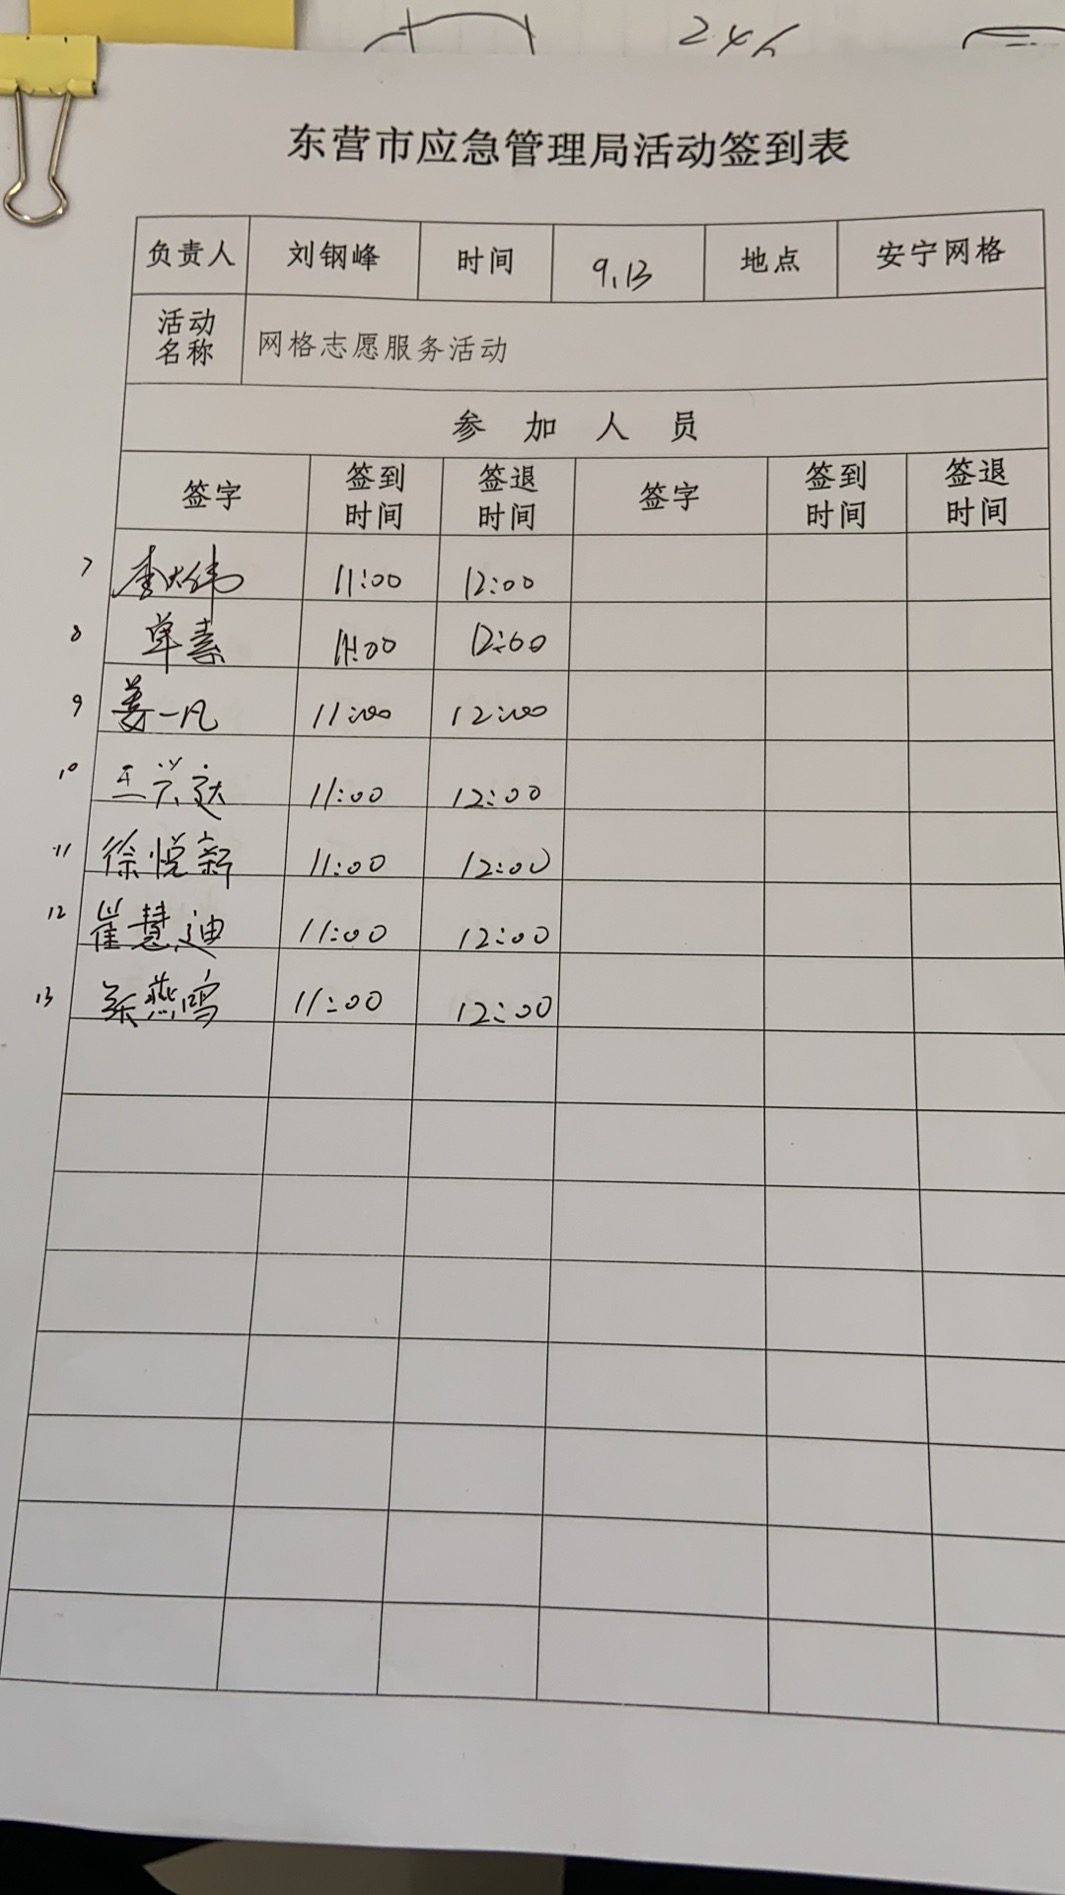 246
东营市应急管理局活动签到表
负责人 刘钢峰 时间 9.13 地点 安宁网格
活动名称 网格志愿服务活动
参加人员
签字 签到时间 签退时间 签字 签到时间 签退时间
7 李大伟 11:00 12:00
8 单素 11:00 12:00
9 姜一凡 11:00 12:00
10 王兴达 11:00 12:00
11 徐悦新 11:00 12:00
12 崔慧迪 11:00 12:00
13 燕鸣 11:00 12:00